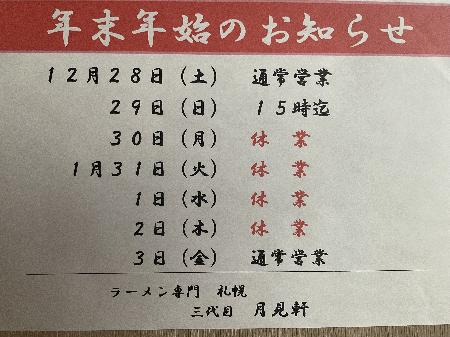 年末年始のお知らせ
12月28日(土) 通常営業
29日(日) 15時迄
30日(月) 休 業
1月31日(火) 休 業
1日(水) 休 業
2日(木) 休 業
3日(金) 通常営業
ラーメン専門 札幌
三代目 月見軒